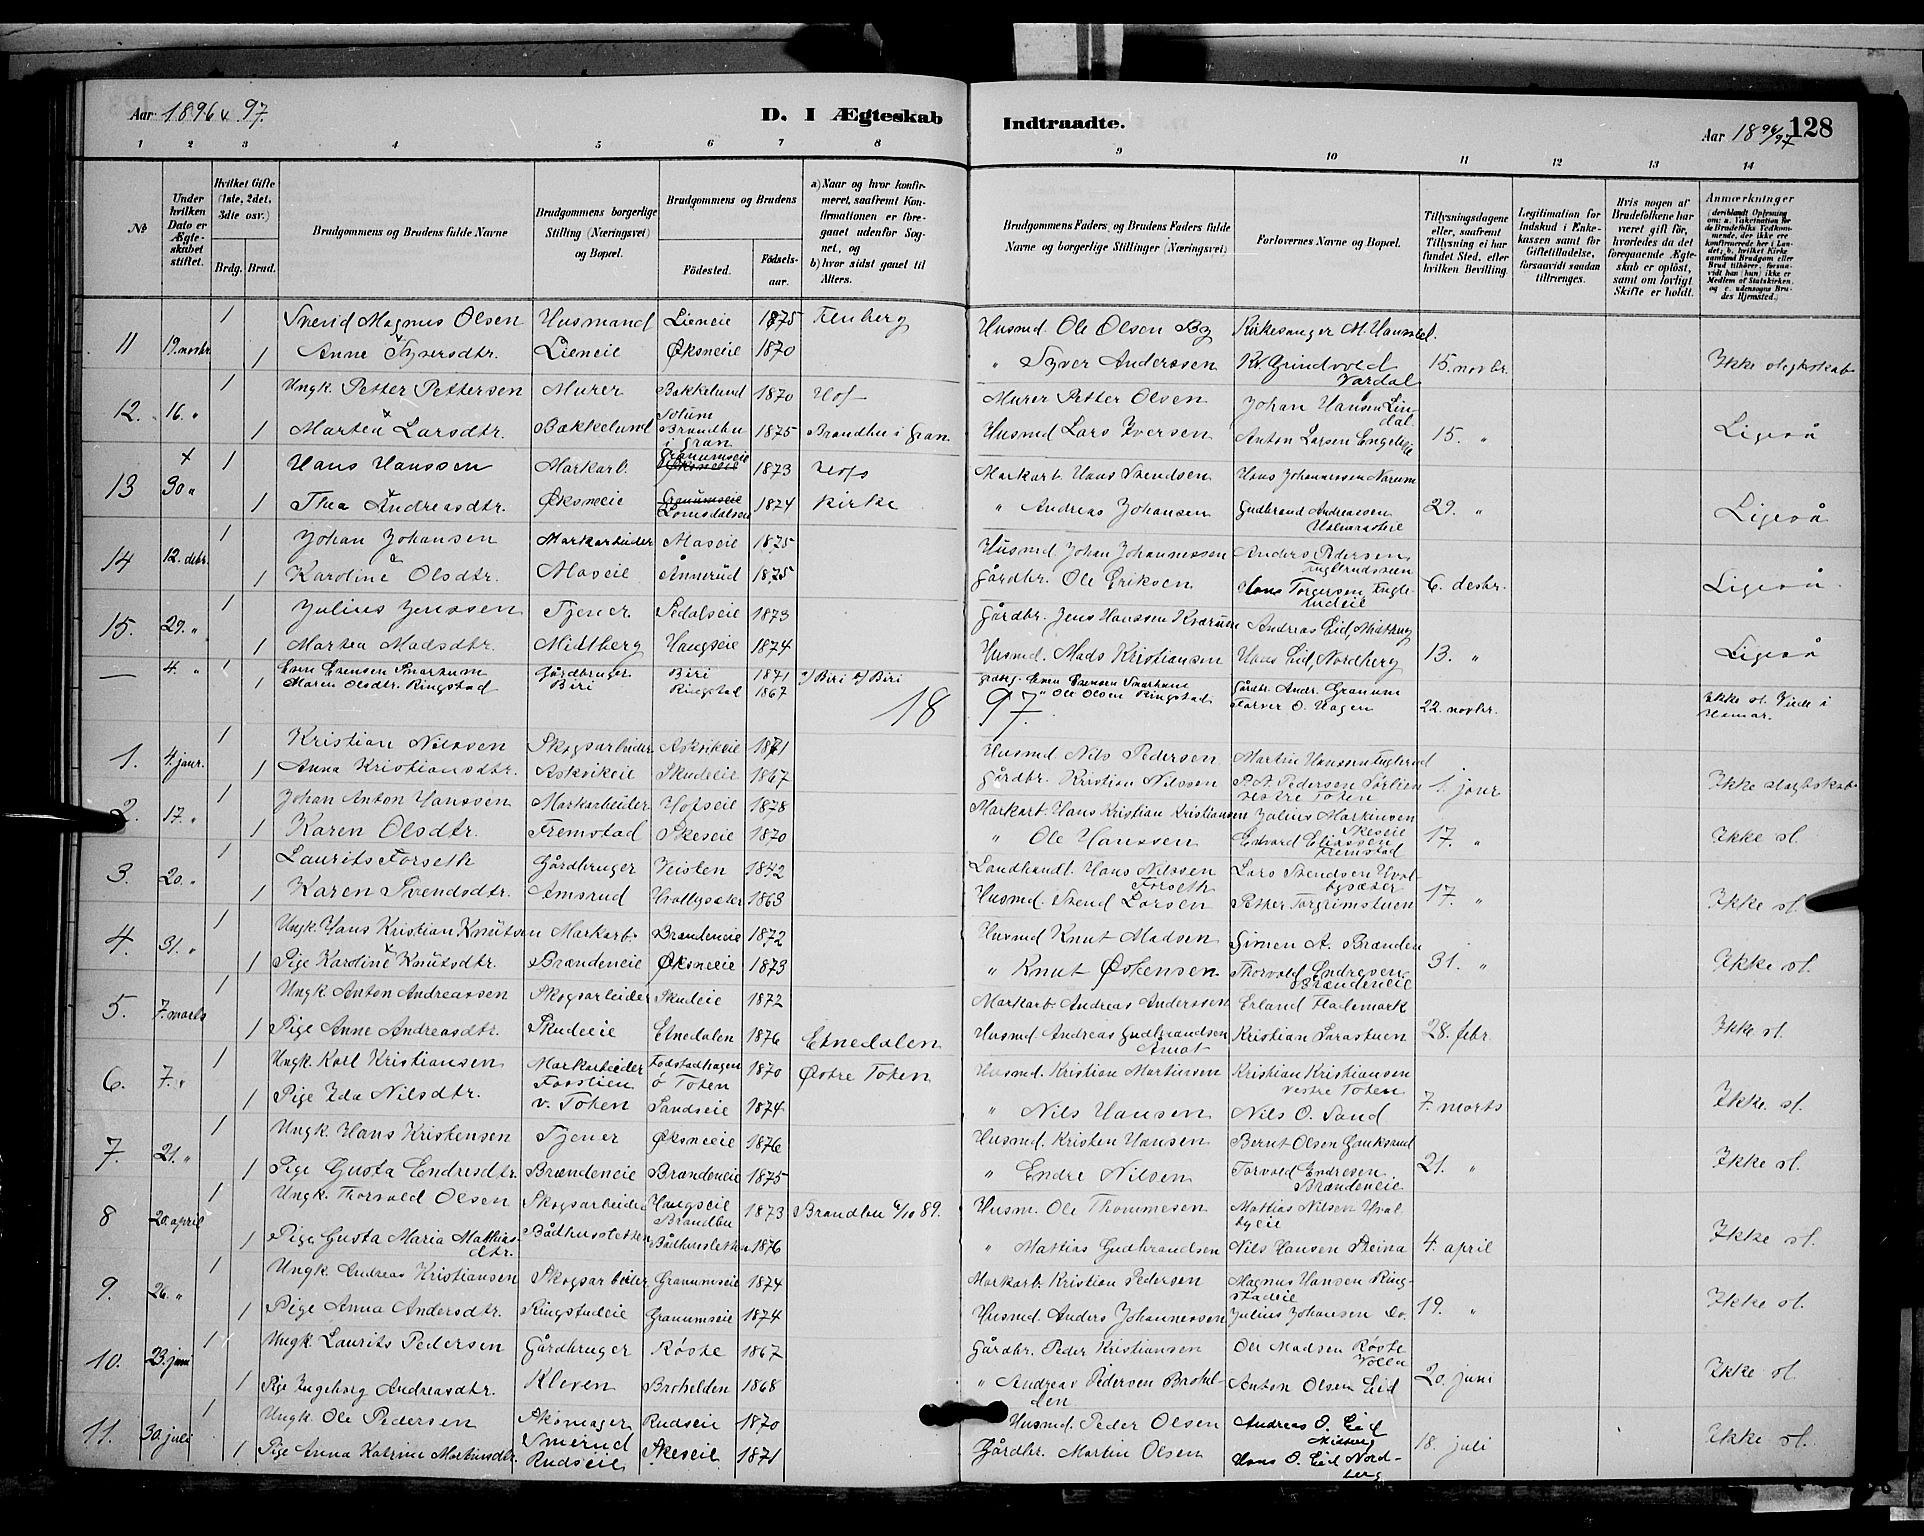 Aar 1896 & 97. D. I Ægteskab Indtraadte. Aar 1896/97 128
1 2 3 4 5 6 7 8 9 10 11 12 13 14
№
Under hvilken Dato er Ægteskabet stiftet.
Hvilket Gifte (1ste, 2det, 3die osv.)
Brdg. Brud.
Brudgommens og Brudens fulde Navne
Brudgommens borgerlige Stilling (Næringsvei) og Bopæl.
Brudgommens og Brudens
Fødested. Fødselsaar.
a) Naar og hvor konfirmeret, saafremt Konfirmationen er foregaaet udenfor Sognet, og
b) hvor sidst gaaet til Alters.
Brudgommens Faders, og Brudens Faders fulde Navne og borgerlige Stillinger (Næringsvei)
Forlovernes Navne og Bopæl.
Tillysningsdagene eller, saafremt Tillysning ei har fundet Sted, efter hvilken Bevilling.
Legitimation for Indskud i Enkekassen samt for Giftetilladelse, forsaavidt saadan tiltrænges.
Hvis nogen af Brudefolkene har været gift før, hvorledes da det foregaaende Ægteskab er opløst, samt om lovligt Skifte er holdt.
Anmærkninger
11 19. novbr. 1 Magnus Olsen Husmand Lieneie 1875 Husmd. Ole Olsen By Kirkesanger M.
1 Anne Syversdtr. Lieneie Øksneie 1870 " Syver Anderssen 15. novbr. Ikke slegtskab
12. 16. " 1 Ungk. Petter Pettersen Murer Bakkelund 1870 Hof Murer Petter Olsen Johan Hansen Lindal Vardal
1 Marten Larsdtr. Bakkelund Brandbu i Gran 1875 Brandbu i Gran Husmd Lars Iversen Anton Larsen 15. " Ligeså
13 30 " 1 Hans Hanssen Markarb. Granumseie 1873 Hofs Markarb. Hans Svendsen Hans Johannessen Narum
1 Thea Andreasdtr. Øksneie Lomsdalen 1874 Kirke " Andreas Johansen Gudbrand Andreassen 29. " Ligeså
14 12. debr. 1 Johan Johansen Markarbeider Maseie 1875 Husmd Johan Johannessen Anders Pedersen
1 Karoline Olsdtr. Maseie Ånnerud 1875 Gårdbr. Ole Eriksen Hans Torgersen 6. desbr. Ligeså
15. 29. " 1 Julius Jenssen Tjener Sedalseie 1873 Gårdbr. Jens Hanssen Andreas Eid, Midtberg
1 Marten Madsdtr. Midtberg Haugseie 1874 Husmd. Mads Kristiansen Hans Eid, Nordberg 13. " Ligeså
— 4. " 1 Even Evensen Gårdbruger Biri 1871 Biri Biri Even Evensen Gårdbr. Andr. Granum
1 Maren Olsdtr. Ringstad Biri Ringstad 1867 " Ole Olsen Ringstad O. Hagen 22. novbr. Ikke sl. Viede i Hamar.
18 97.
1. 4. janr. 1 Kristian Nilssen Skogsarbeider Askvikeie 1871 Husmd Nils Pedersen Martin Hanssen Fuglerud
1 Anna Kristiansdtr. Askvikeie Skudeie 1867 Gårdbr. Kristian Nilssen P. A. Pedersen Sørlien vestre Toten 1. janr Ikke slegtskab
2. 17. " 1 Johan Anton Hanssen Markarbeider Hofseie 1878 Markarb. Hans Kristian Kristiansen Julius Martinsen Skeseie
1 Karen Olsdtr. Fremstad Skeseie 1870 " Ole Hanssen Edvard Eliassen Fremstad 17. " Ikke sl.
3. 20. " 1 Laurits Forseth Gårdbruger Veisten 1842 Landhandl. Hans Nilssen Forseth Lars Svendsen
1 Karen Svendsdtr. Amsrud 1863 Husmd. Svend Larsen Petter Torgrimstuen 17. " Ikke sl.
4. 31. " 1 Ungk. Hans Kristian Knutsen Markarb. Brændeneie 1872 Husmd Knut Madsen Simen A. Brænden
1 Pige Karoline Knutsdtr. Brændeneie Øksneeie 1873 " Knut Østensen Thorvald Endresen Brændeneie 31. " Ikke sl.
5. 7. marts 1 Ungk. Anton Andreassen Skogsarbeider Skudeie 1872 Markarb. Andreas Anderssen Erland Flademark
1 Pige Anne Andreasdtr. Skudeeie Etnedalen 1876 Etnedalen Husmd. Andreas Gudbrandsen Kristian Sarastuen 28. febr Ikke sl.
6. 7. " 1 Ungk. Karl Kristiansen Markarbeider Fodstadhagen ø Toten 1870 Østre Toten Husmd. Kristian Martinsen Kristian Kristiansen vestre Toten
1 Pige Ida Nilsdtr. v. Toten Sandseie 1874 " Nils Hansen Nils O. Sand 7. marts Ikke sl.
7. 21. " 1 Ungk. Hans Kristensen Tjener Øksneeie 1876 Husmd. Kristen Hansen Bernt Olsen
1 Pige Gusta Endresdtr. Brændeneie Brændeneie 1875 " Endre Nilsen Torvald Endresen Brændeneie 21. " Ikke sl.
8 20. april 1 Ungk. Thorvald Olsen Skogsarbeider Haugseie Brandbu 1873 Brandbu 6/10 89. Husm. Ole Thommesen Mattias Nilsen
1 Pige Gusta Maria Matthiasdtr. Bådhussletten Bådhussletten 1876 " Mattias Gudbrandsen Nils Hansen Steina 4. april Ikke sl.
9. 26. " 1 Ungk. Andreas Kristiansen Skogsarbeider Granumseie 1874 Markarb. Kristian Pedersen Magnus Hansen Ringstadeie
1 Pige Anna Andersdtr. Ringstadeie Granumseie 1874 Husmd. Anders Johannessen Julius Johansen Do. 19. " Ikke sl.
10. 23. juni 1 Ungk. Laurits Pedersen Gårdbruger Røste 1867 Gårdbr. Peder Kristiansen Ole Madsen Røste Volla
1 Pige Ingeborg Andreasdtr. Kleven Brohelden 1868 " Andreas Pedersen Brohelden Anton Olsen Eid 20. juni Ikke sl.
11. 30. juli 1 Ungk. Ole Pedersen Skomager Rudseie 1870 Husmd. Peder Olsen Andreas O. Eid Midberg
1 Pige Anna Katrine Martinsdtr. Smerud Rudseie Skeseie 1871 Gårdbr. Martin Olsen Hans O. Eid Nordberg 18. juli Ikke sl.